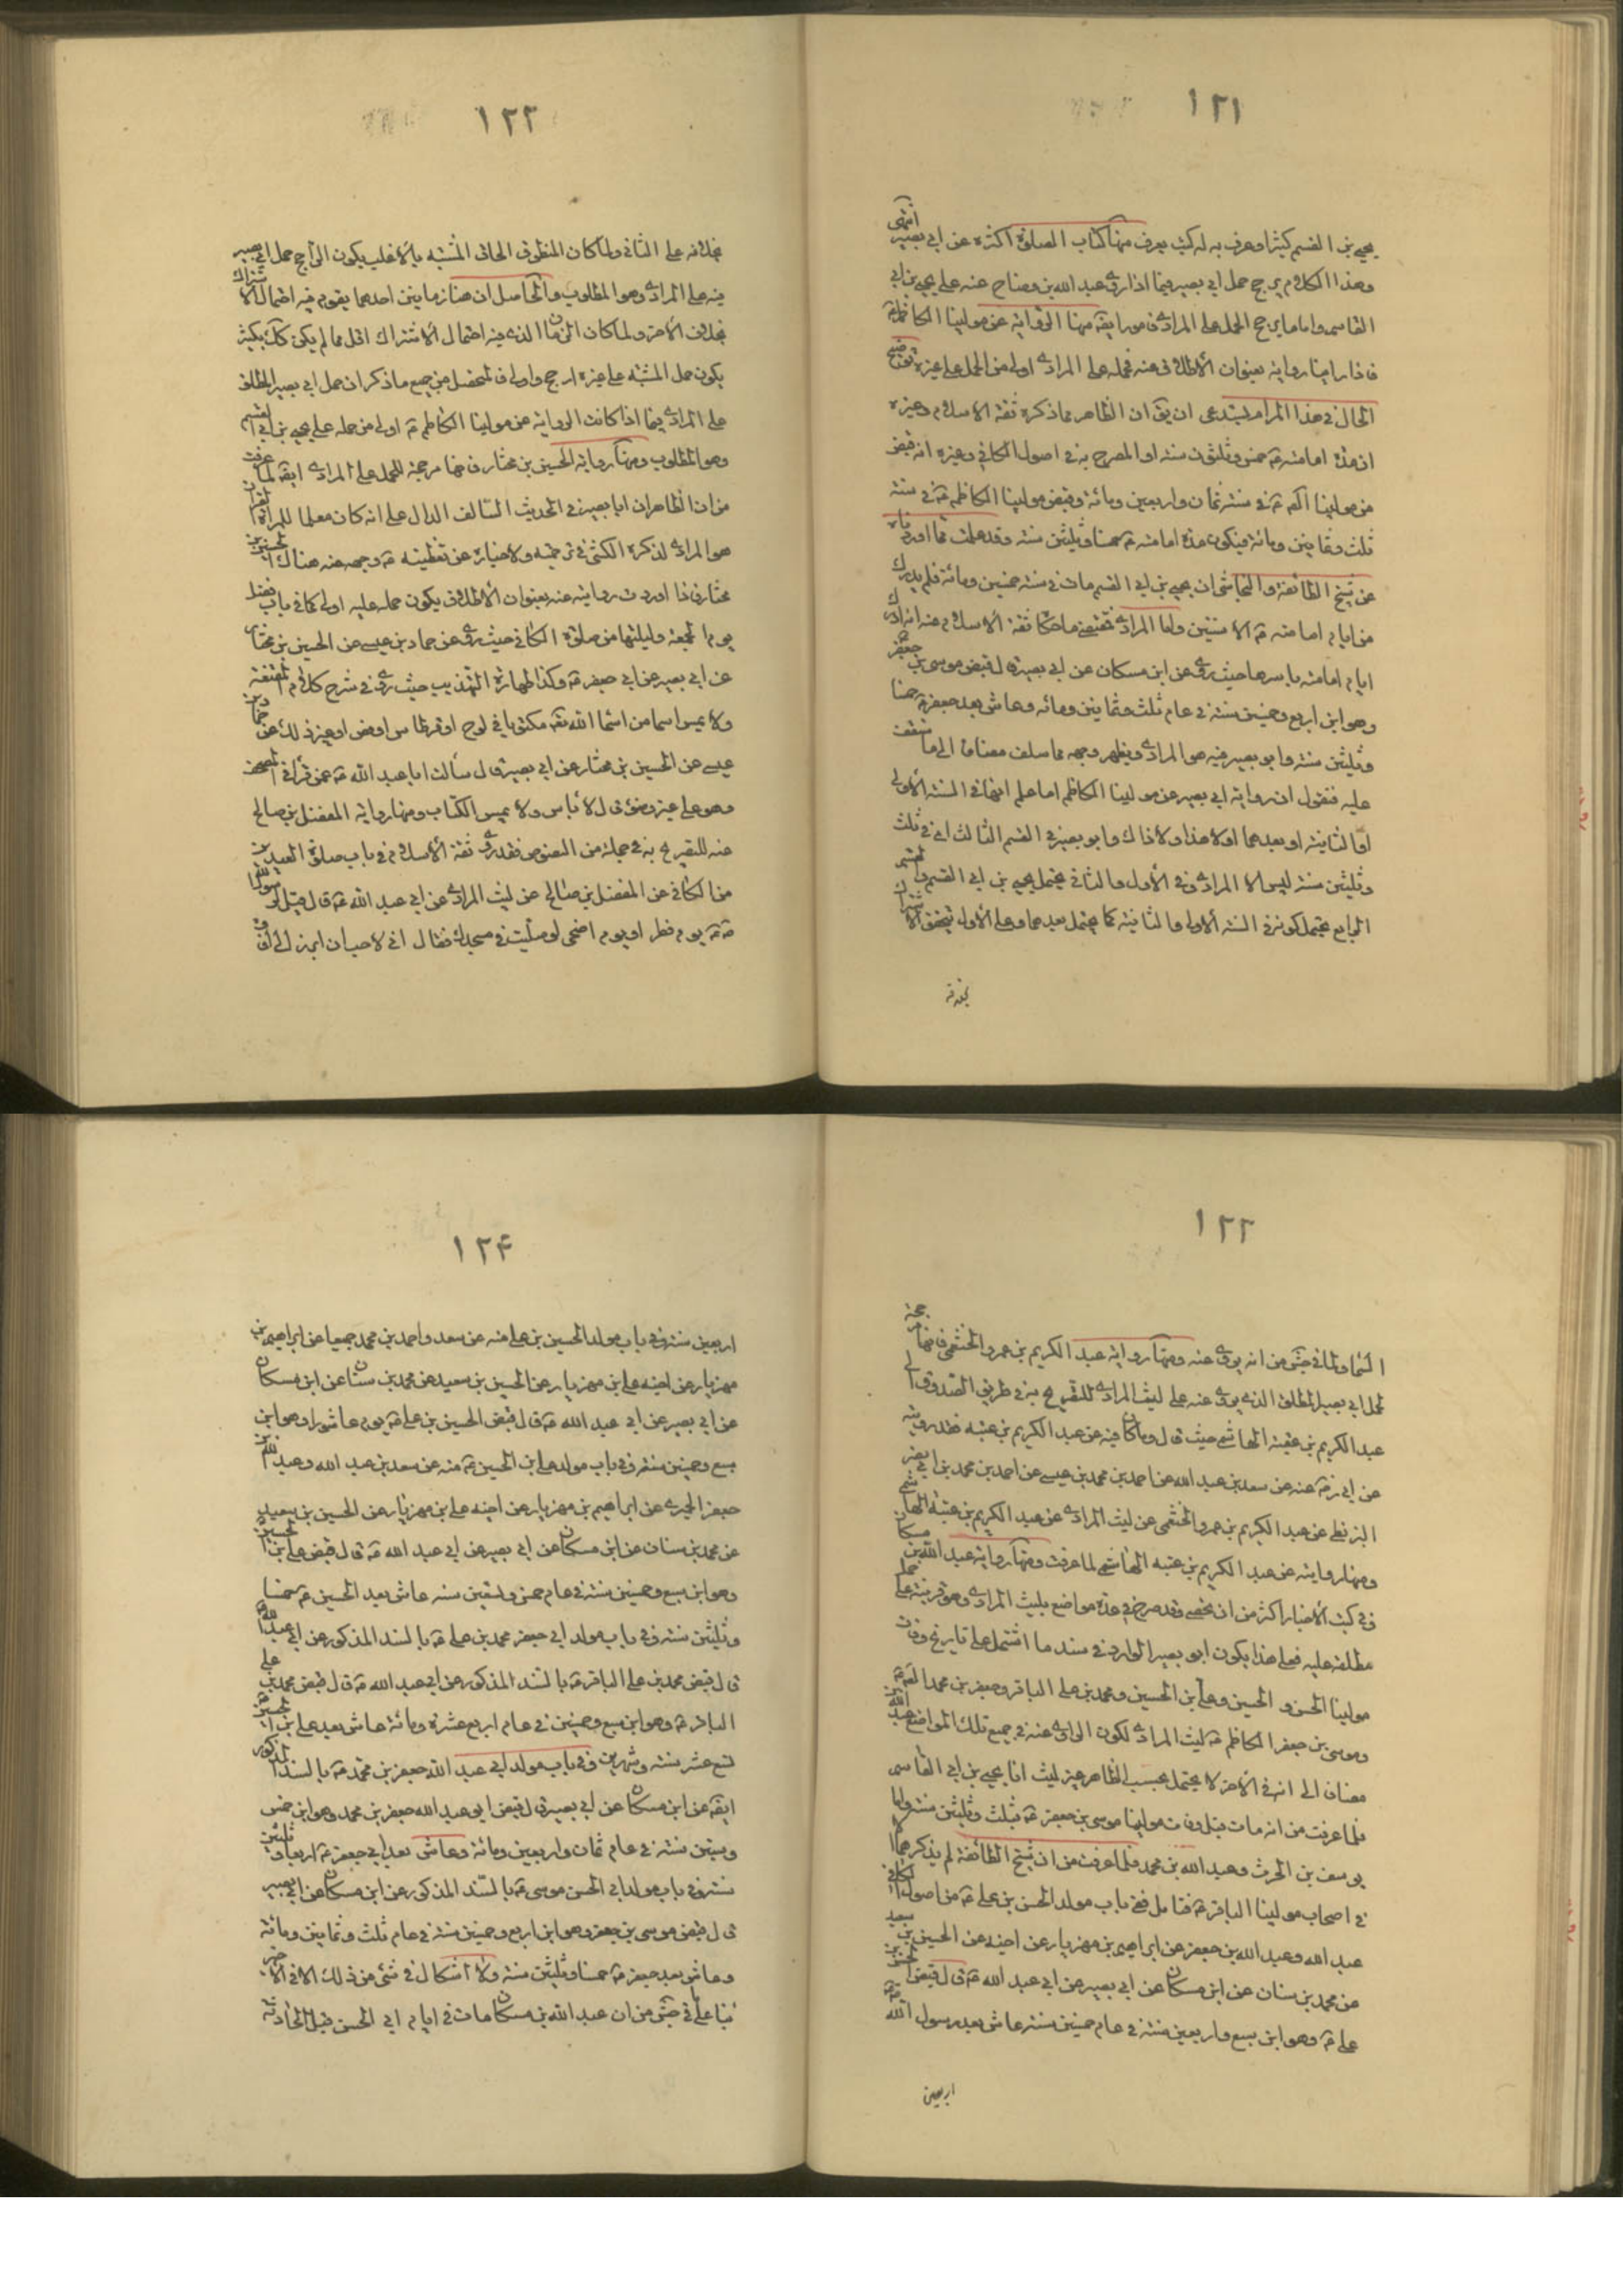 ١٢١
يحيى بن القسم كثيرا وعرف به له كتب يعرف منها كتاب الصلوة اكثره عن ابي بصير انتهى
وهذا الكلام يرجح حمل ابي بصير فيما اذا روى عبد الله بن وضاح عنه على يحيى بن ابي
القاسم واما ما يرجح الحمل على المرادى فامور ايضه منها الرواية عن مولينا الكاظم ع
فاذا راينا رواية بعنوان الأطلاق عنه فحمله على المرادى اولى من الحمل على غيره توضيح
الحال في هذا المرام يستدعى ان يق ان الظاهر مما ذكره ثقة الاسلام وغيره
ان مدة امامته ع خمس وثلثون سنة او المصرح به في اصول الكافي وغيره انه قبض
من مولينا الصه ع في سنة ثمان واربعين ومائة وقبض مولينا الكاظم ع في سنة
ثلث وثمانين ومائة فيكون مدة امامته ع خمسا وثلثين سنة وقد علمت مما اوردناه
عن شيخ الطائفة والنجاشى ان يحيى بن ابي القسم مات في سنة خمسين ومائة فلم يدرك
من ايام امامته ع الا سنتين واما المرادى فمقتضى ما حكاه ثقة الاسلام عنه انه ادرك
ايام امامته باسرها حيث روى عن ابن مسكان عن ابي بصير قال قبض موسى بن جعفر ع
وهو ابن اربع وخمسين سنة في عام ثلث وثمانين ومائه وعاش بعد جعفر ع خمسا
وثلثين سنة وابو بصير فيه هو المرادى ويظهر وجهه مما سلف مضافا الى ما ستقف
عليه فنقول ان رواية ابي بصير عن مولينا الكاظم اما علم انها في السنة الأولى
او الثانية او بعدهما اولا هذا ولا ذاك وابو بصير في القسم الثالث اى في ثلث
وثلثين سنة ليس الا المرادى وفي الأول والثاني يحتمل يحيى بن ابي القسم والقسم
الرابع يحتمل كونه في السنة الاولى والثانية كما يحتمل بعدهما وعلى الأول يتحقق الاشتراك
بخلافه
١٢٢
بخلافه على الثاني ولما كان المظنون الحاق المشتبه بالأغلب يكون الراجح حمل ابي بصير
فيه على المرادى وهو المطلوب والحاصل ان هنا زمانين احدهما يقوم فيه احتمال الاشتراك
بخلاف الأخر ولما كان الزمان الذى فيه احتمال الأشتراك اقل مما لم يكن كك بكثير
يكون حمل المشتبه على غيره ارجح واولى فالمحصل من جميع ما ذكر ان حمل ابي بصير المطلق
على المرادى فيما اذا كانت الرواية عن مولينا الكاظم ع اولى من حمله على يحيى بن ابي القسم
وهو المطلوب ومنها رواية الحسين بن مختار فانها مرجحة للحمل على المرادى ايضه لما عرفت
من ان الظاهر ان ابا بصير في الحديث السالف الدال على انه كان معلما للمراة القران
هو المرادى لذكره الكشى في ترجمته ولاخباره عن تغطيته ع وجهه عنه هناك الحسين بن
مختار فاذا اوردت روايته عنه بعنوان الأطلاق يكون حمله عليه اولى كما في باب فضل
يوم الجمعة وليلتها من صلوة الكافي حيث روى عن حماد بن عيسى عن الحسين بن مختار
عن ابي بصير عن ابي جعفر ع وكذا طهارة التهذيب حيث روى في شرح كلام المقنعة
ولا يمس اسما من اسماء الله تعه مكتوبا في لوح او قرطاس او فص او غير ذلك عن حماد بن
عيسى عن الحسين بن مختار عن ابي بصير قال سألت ابا عبد الله ع عمن قرأ في المصحف
وهو على غير وضوء قال لا بأس ولا يمس الكتاب ومنها رواية المفضل بن صالح
عنه للتصريح به في جملة من النصوص فقد روى ثقة الأسلام في باب صلوة العيدين
من الكافي عن المفضل بن صالح عن ليث المرادى عن ابي عبد الله ع قال قيل لرسول الله
ص يوم فطر او يوم اضحى لو صليت في مسجدك فقال انى لاحب ان ابرز الى افاق
١٢٣
السماء ولما في جش من انه يروى عنه ومنها رواية عبد الكريم بن عمرو الخثعمى فانها مرجحة
لحمل ابي بصير المطلق الذى يروى عنه على ليث المرادى للتصريح به في طريق الصدوق الى
عبد الكريم بن عتبة الهاشمى حيث قال وما كان فيه عن عبد الكريم بن عتبه فقد رويته
عن ابي رض عنه عن سعد بن عبد الله عن احمد بن محمد بن عيسى عن احمد بن محمد بن ابي نصر
البزنطى عن عبد الكريم بن عمرو الخثعمى عن ليث المرادى عن عبد الكريم بن عتبة الهاشمى
ومنها روايته عن عبد الكريم بن عتبه الهاشمى لما عرفت ومنها رواية عبد الله بن مسكان
في كتب الأخبار اكثر من ان يحصى وقد صرح في عدة مواضع بليث المرادى وهو قرينة على حمل
مطلقه عليه فعلى هذا يكون ابو بصير الوارد في سند ما اشتمل على تاريخ وفات
مولينا الحسن و الحسين وعلى بن الحسين ومحمد بن على الباقر وجعفر بن محمد الصه ع
وموسى بن جعفر الكاظم ع ليث المرادى لكون الراوى عنه في جميع تلك المواضع عبد الله بن
مضافا الى انه في الأخر لا يحتمل بحسب الظاهر غير ليث اما يحيى بن ابي القاسم
فلما عرفت من انه مات قبل وفات مولينا موسى بن جعفر ع بثلث وثلثين سنة واما
يوسف بن الحرث وعبد الله بن محمد فلما عرفت من ان شيخ الطائفة لم يذكرهما الا
في اصحاب مولينا الباقر ع فتامل ففي باب مولد الحسن بن على ع من اصول الكافي
عبد الله وعبد الله بن جعفر عن ابراهيم بن مهزيار عن اخيه عن الحسين بن سعيد
عن محمد بن سنان عن ابن مسكان عن ابي بصير عن ابي عبد الله ع قال قبض الحسن بن
على ع وهو ابن سبع واربعين سنة في عام خمسين سنة عاش بعد رسول الله ص
اربعين
١٢۴
اربعين سنة وفي باب مولد الحسين بن على منه عن سعد واحمد بن محمد جميعا عن ابراهيم بن
مهزيار عن اخيه على بن مهزيار عن الحسين بن سعيد عن محمد بن سنان عن ابن مسكان
عن ابي بصير عن ابي عبد الله ع قال قبض الحسين بن على ع يوم عاشورا وهو ابن
سبع وخمسين سنة وفي باب مولد على ابن الحسين ع منه عن سعد بن عبد الله وعبد الله بن
جعفر الحميرى عن ابراهيم بن مهزيار عن اخيه على بن مهزيار عن الحسين بن سعيد
عن محمد بن سنان عن ابن مسكان عن ابي بصير عن ابي عبد الله ع قال قبض على بن الحسين ع
وهو ابن سبع وخمسين سنة في عام خمس وتسعين سنه عاش بعد الحسين ع خمسا
وثلثين سنة وفي باب مولد ابي جعفر محمد بن على ع بالسند المذكور عن ابي عبد الله ع
قال قبض محمد بن على الباقر ع بالسند المذكور عن ابي عبد الله ع قال قبض محمد بن على
الباقر ع وهو ابن سبع وخمسين في عام اربع عشرة ومائة عاش بعد على بن الحسين ع
تسع عشر سنة وشهرين وفي باب مولد ابي عبد الله جعفر بن محمد ع بالسند المذكور
ايضه عن ابن مسكان عن ابي بصير قال قبض ابي عبد الله جعفر بن محمد وهو ابن خمس
وستين سنة في عام ثمان واربعين ومائة وعاش بعد ابي جعفر ع اربعا وثلثين
سنة وفي باب مولد ابي الحسن موسى ع بالسند المذكور عن ابن مسكان عن ابي بصير
قال قبض موسى بن جعفر وهو ابن اربع وخمسين سنة في عام ثلث وثمانين ومائة
وعاش بعد جعفر ع خمسا وثلثين سنة ولا اشكال في شئ من ذلك الا في الأخير
بناء على ما في جش من ان عبد الله بن مسكان مات في ايام ابي الحسن قبل الحادثة